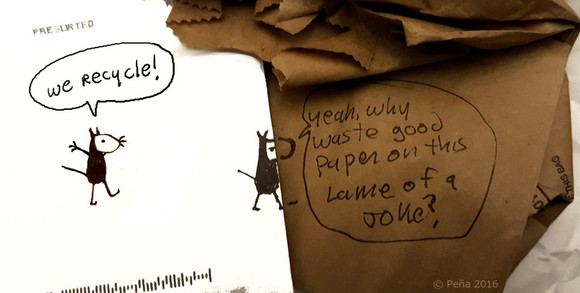 PRESORTED
we Recycle!
yeah, why
waste good
paper on this
lame of a
joke?
THIS BAG
© Peña 2016